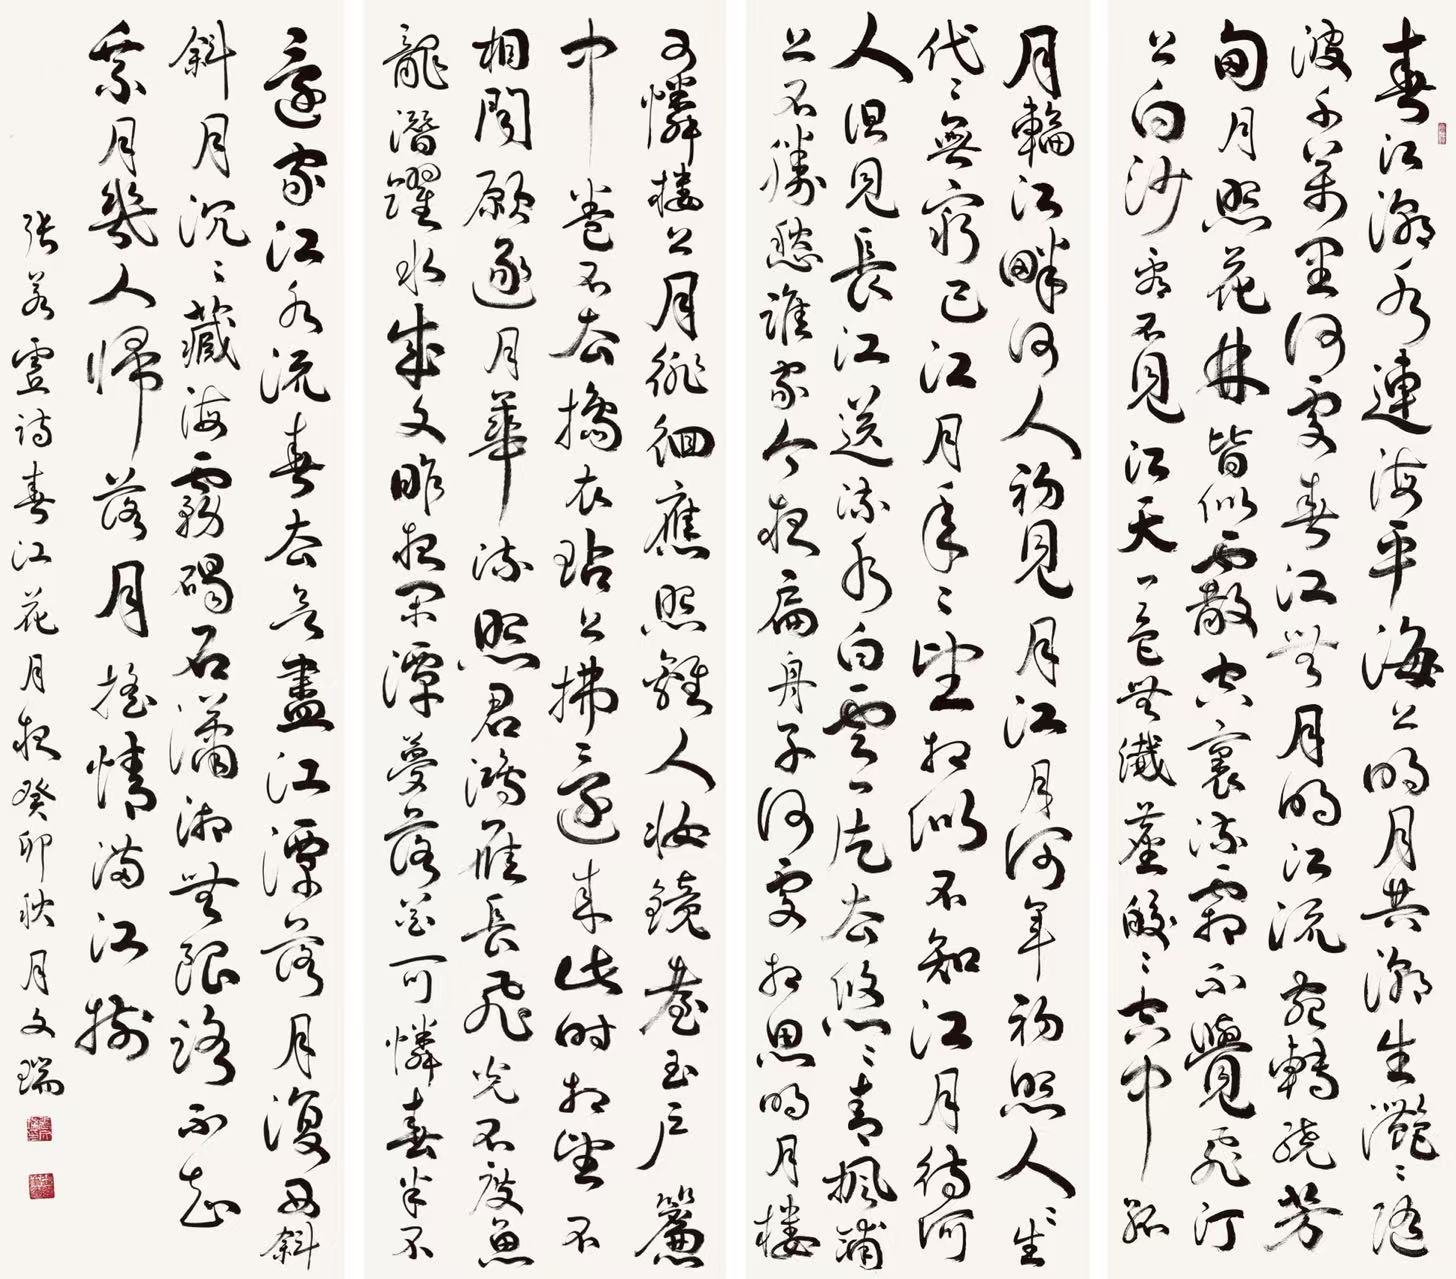 春江潮水連海平海上明月共潮生灩々隨
波千萬里何處春江無月明江流宛轉繞芳
甸月照花林皆似霰空裏流霜不覺飛汀
上白沙看不見江天一色無纖塵皎々空中孤
月輪江畔何人初見月江月何年初照人人々生
代々無窮已江月年々望相似不知江月待何
人但見長江送流水白雲一片去悠々青楓浦
上不勝愁誰家今夜扁舟子何處相思明月樓
可憐樓上月徘徊應照離人妝鏡臺玉戶簾
中卷不去擣衣砧上拂還來此時相望不
相聞願逐月華流照君鴻雁長飛光不度魚
龍潛躍水成文昨夜閑潭夢落花可憐春半不
還家江水流春去欲盡江潭落月復西斜
斜月沉々藏海霧碣石瀟湘無限路不知
乘月幾人歸落月搖情滿江樹
張若虛詩春江花月夜癸卯秋月文瑞